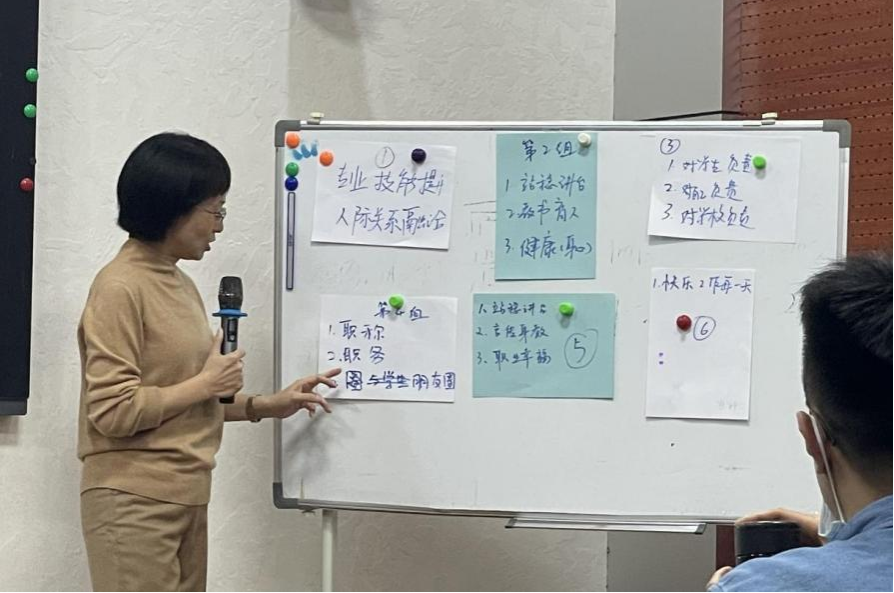 ①
专业技能提升
人际关系融洽
第2组
1 站稳讲台
2 教书育人
3. 健康(身心)
③
1 对学生负责
2. 对自己负责
3. 对学校负责
第组
1. 职称
2. 职务
与学生朋友圈
1. 站稳讲台
2. 言传身教
3. 职业幸福
⑤
1. 快乐工作每一天
⑥